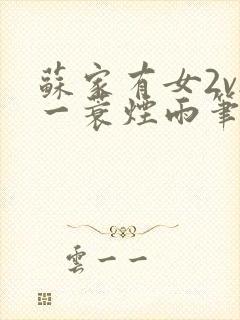 蘇家有女2v
一蓑煙雨筆
雲一一